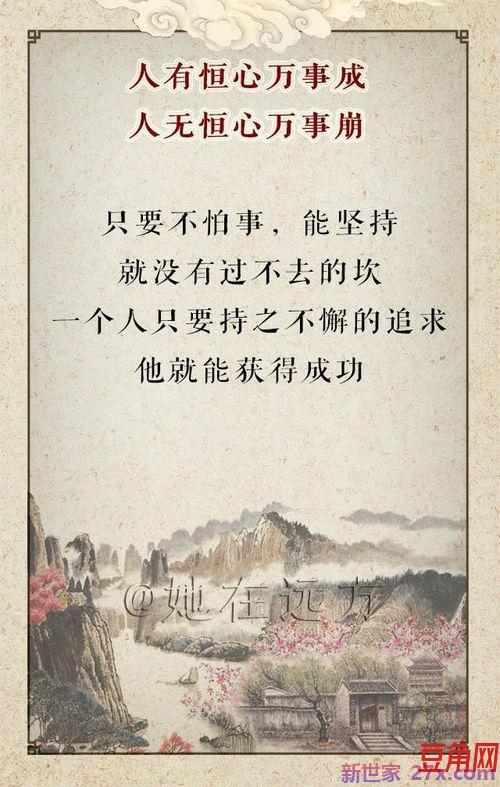 人有恒心万事成
人无恒心万事崩
只要不怕事，能坚持
就没有过不去的坎
一个人只要持之不懈的追求
他就能获得成功
@她在远方
豆角网
新世家 27x.com